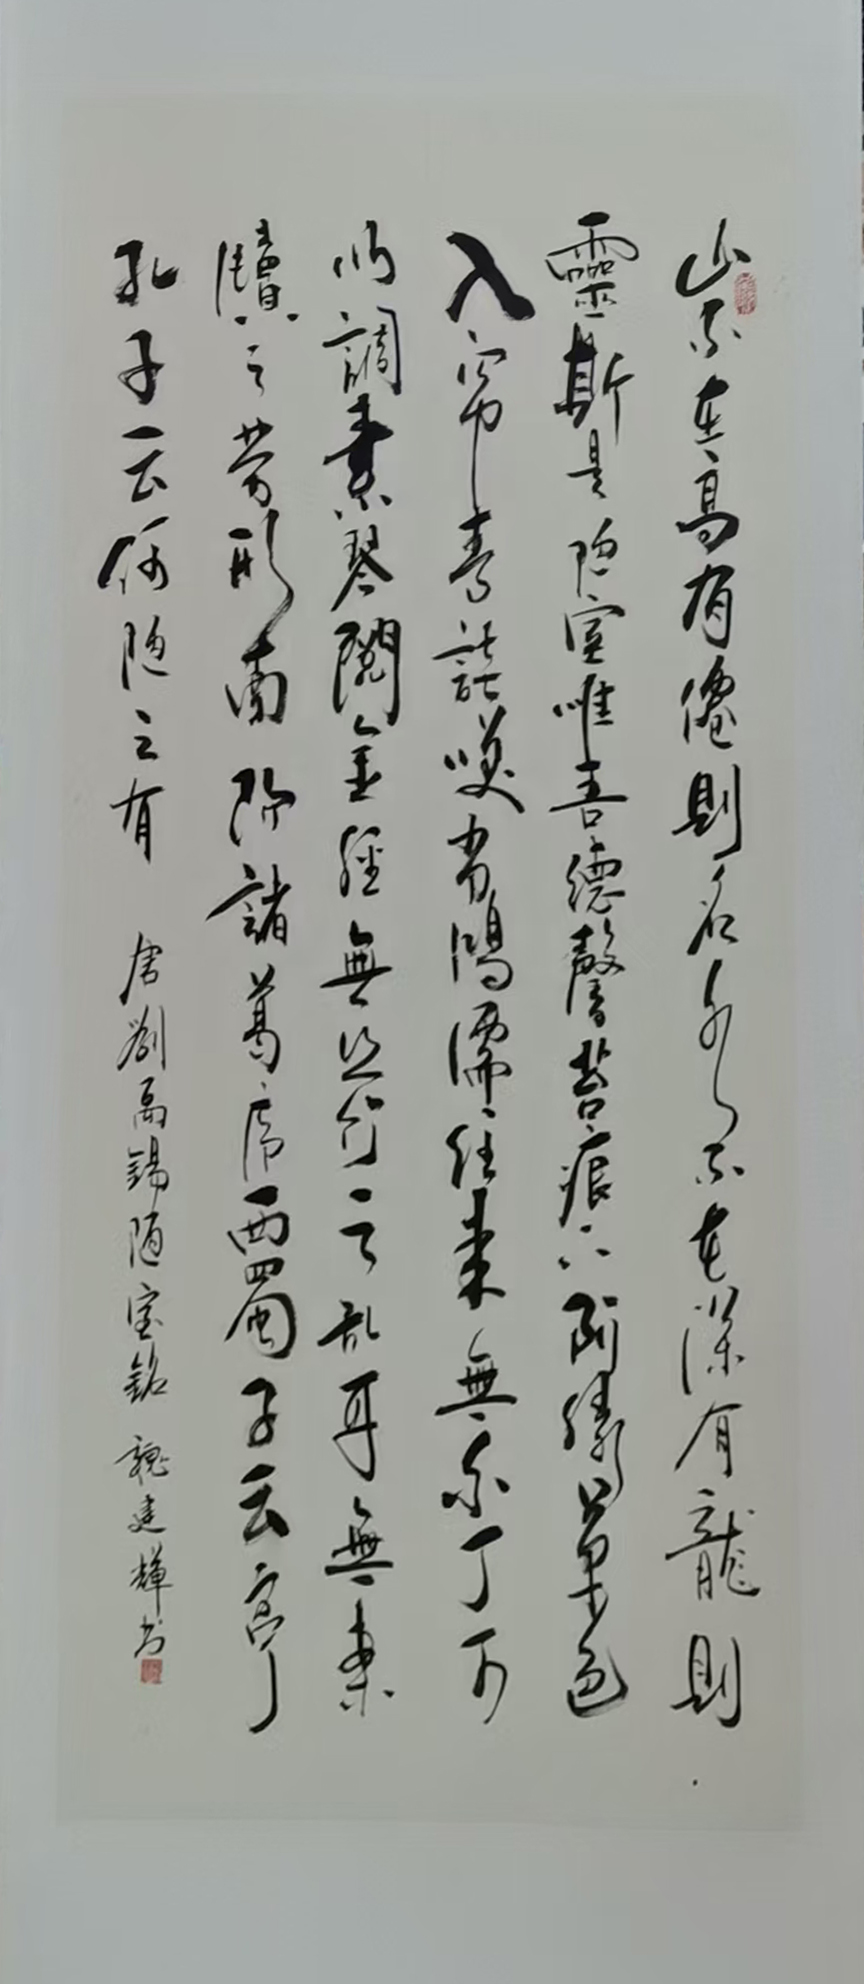 山不在高有僊則名水不在深有龍則
靈斯是陋室唯吾德馨苔痕上階綠草色
入帘青談笑有鴻儒往來無白丁可
以調素琴閱金經無絲竹之乱耳無案
牘之勞形南陽諸葛廬西蜀子云亭
孔子云何陋之有 唐劉禹錫陋室銘 魏建輝书